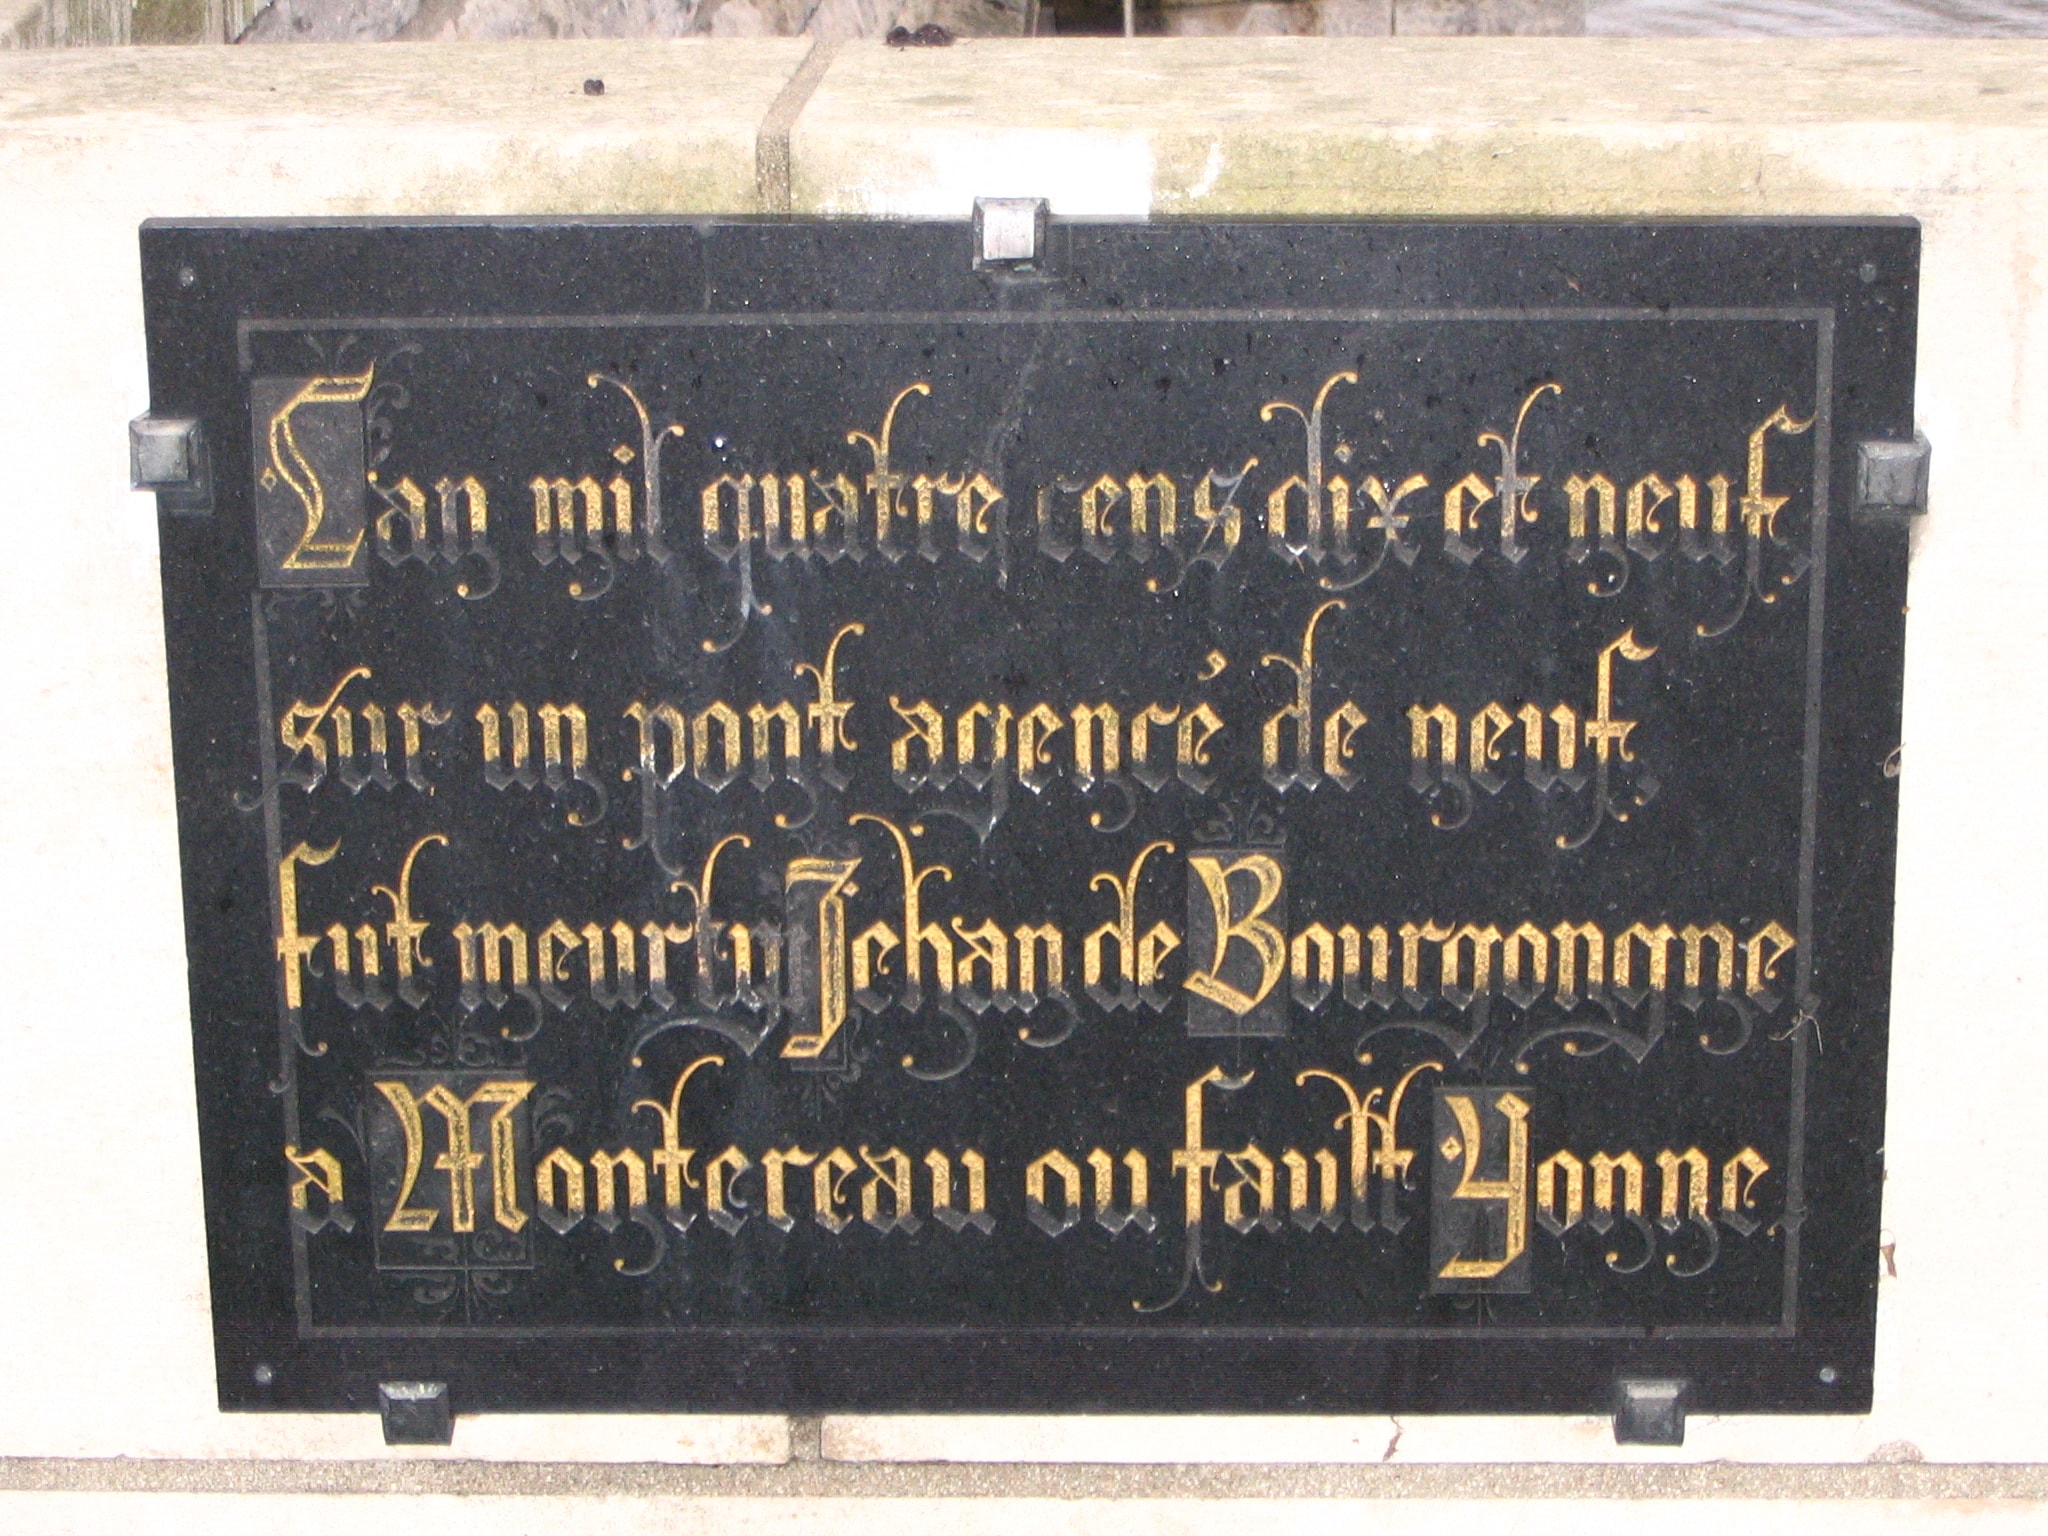 Lan mil quatre cens dix et neuf,
sur un pont agencé de neuf,
fut meurtry Jehan de Bourgongne
a Montereau ou fault Yonne.